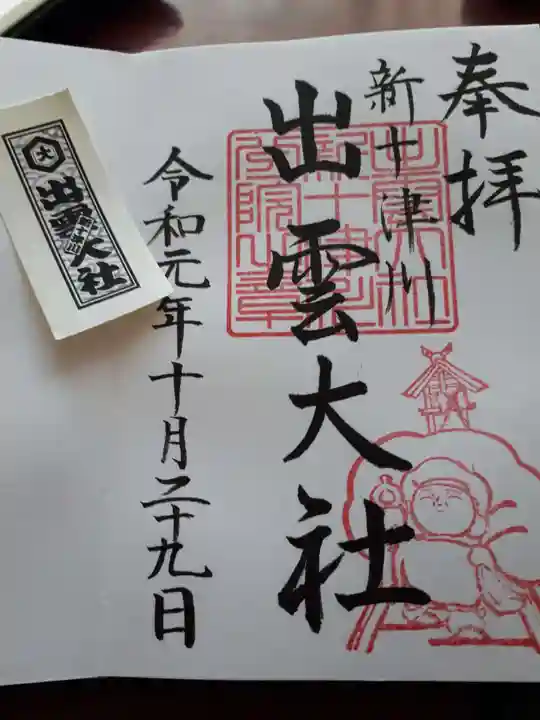 奉拝
新十津川
出雲大社
令和元年十月二十九日
大
出雲大社